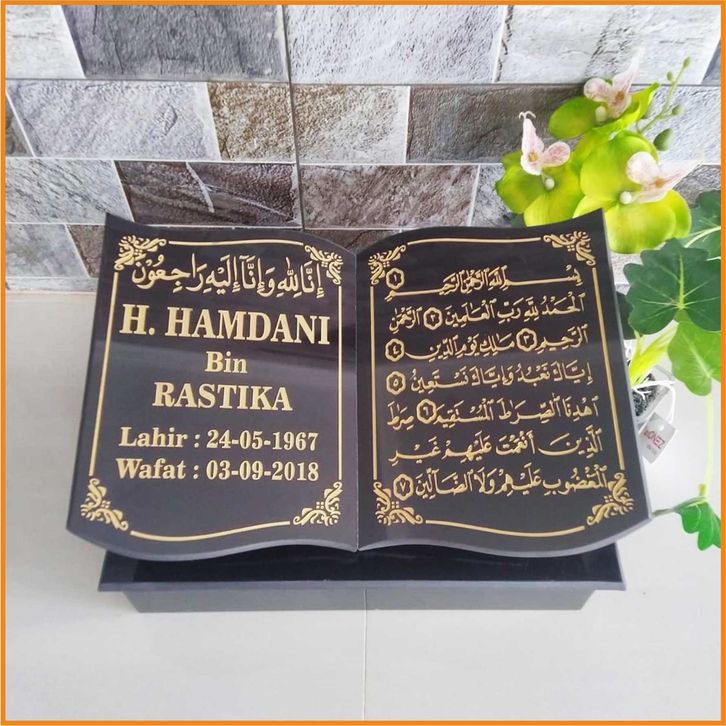 إِنَّا لِلَّهِ وَإِنَّآ إِلَيْهِ رَاجِعُوْنَ
H. HAMDANI
Bin
RASTIKA
Lahir : 24-05-1967
Wafat : 03-09-2018
بِسْمِ اللهِ الرَّحْمٰنِ الرَّحِيْمِ ١
اَلْحَمْدُ لِلّٰهِ رَبِّ الْعَالَمِيْنَ ٢ الرَّحْمٰنِ
الرَّحِيْمِ ٣ مَالِكِ يَوْمِ الدِّيْنِ ٤
اِيَّاكَ نَعْبُدُ وَاِيَّاكَ نَسْتَعِيْنُ ٥
اِهْدِنَا الصِّرَاطَ الْمُسْتَقِيْمَ ٦ صِرَاطَ
الَّذِيْنَ أَنْعَمْتَ عَلَيْهِمْ غَيْرِ
الْمَغْضُوْبِ عَلَيْهِمْ وَلَا الضَّالِّيْنَ ٧